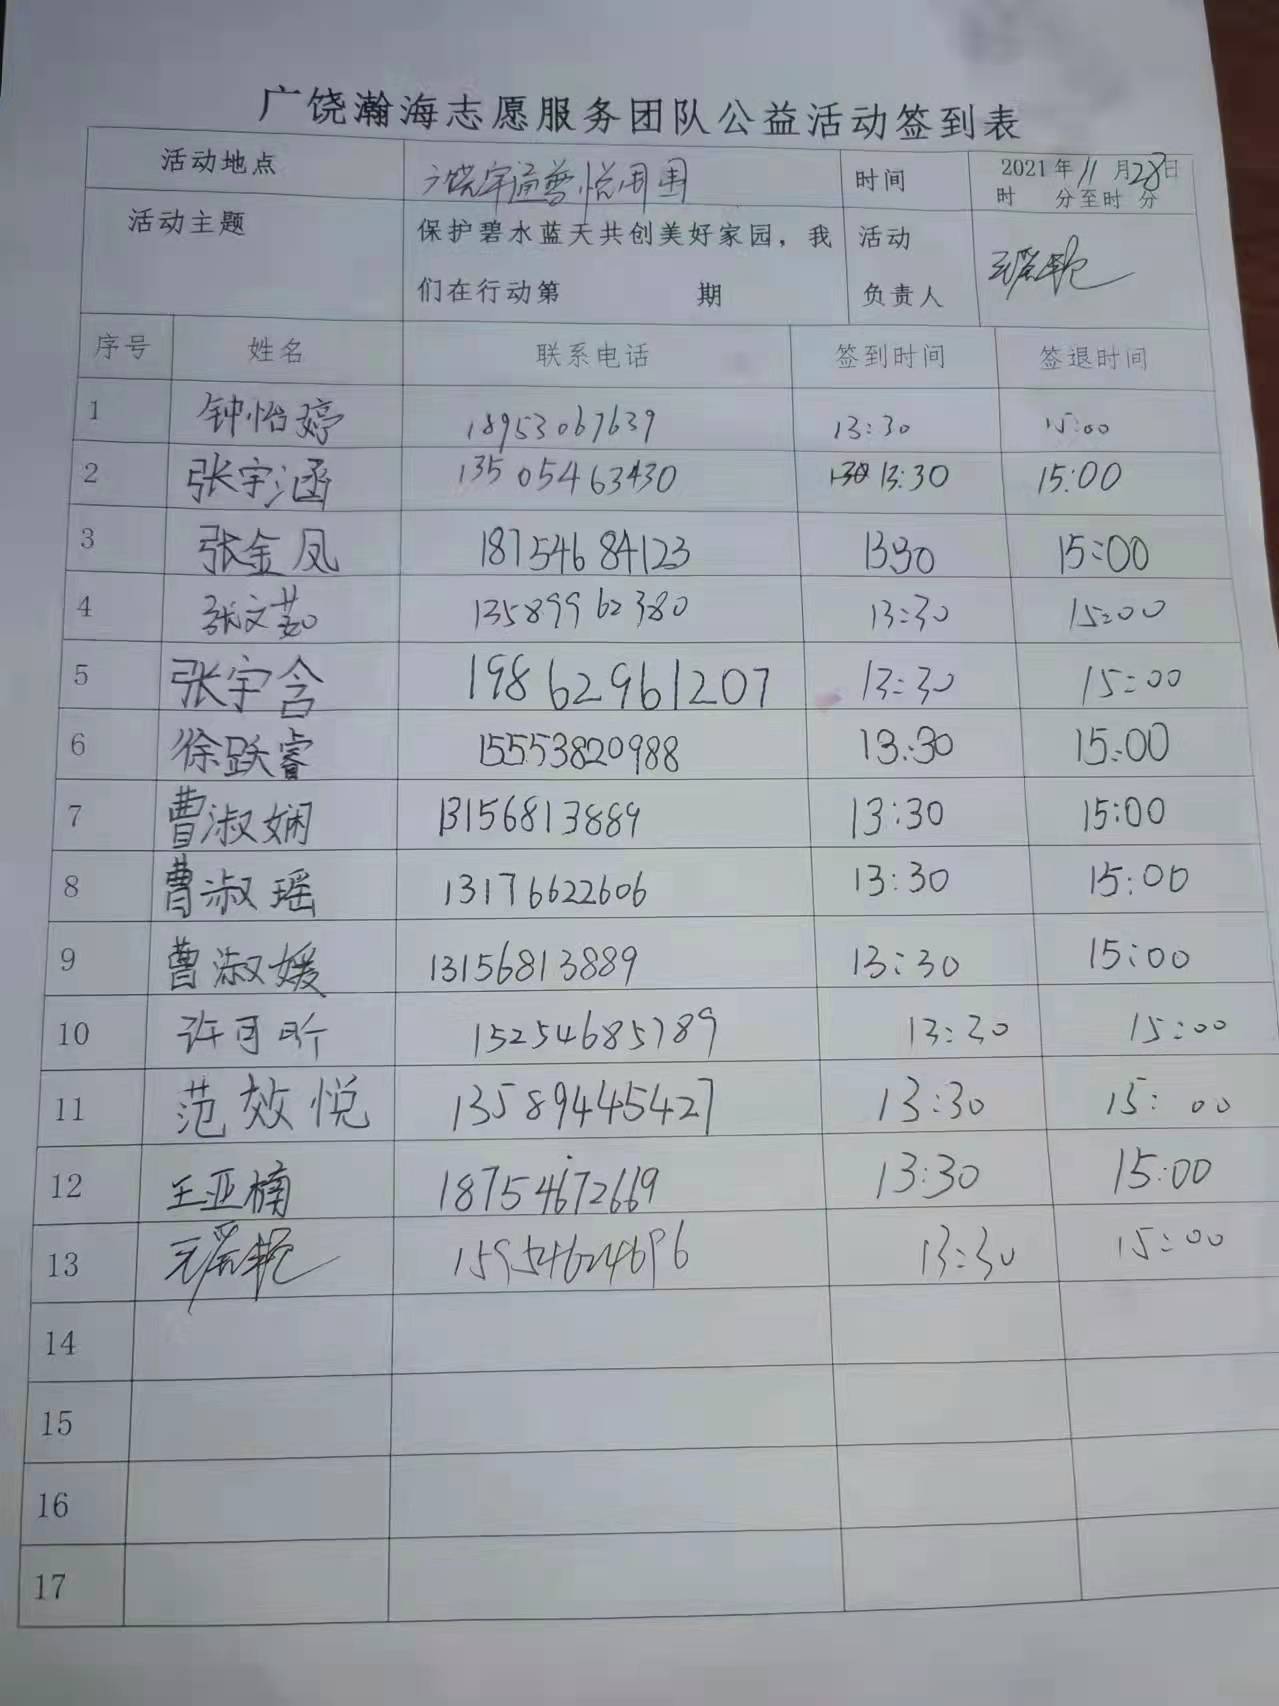 广饶瀚海志愿服务团队公益活动签到表
活动地点 广饶宇通誉悦周围 时间 2021年11月28日
时 分至时 分
活动主题 保护碧水蓝天共创美好家园，我 活动
们在行动第 期 负责人
序号 姓名 联系电话 签到时间 签退时间
1 钟怡婷 18953067639 13:30 15:00
2 张宇涵 13505463430 13:30 15:00
3 张金凤 18754684123 1330 15:00
4 张文茹 13589962380 13:30 15:00
5 张宇含 19862961207 13:30 15:00
6 徐跃睿 15553820988 13:30 15:00
7 曹淑娴 13156813889 13:30 15:00
8 曹淑瑶 13176622606 13:30 15:00
9 曹淑媛 13156813889 13:30 15:00
10 许可昕 15254685789 13:30 15:00
11 范效悦 13589445427 13:30 15:00
12 王亚楠 18754672669 13:30 15:00
13 15954624696 13:30 15:00
14
15
16
17